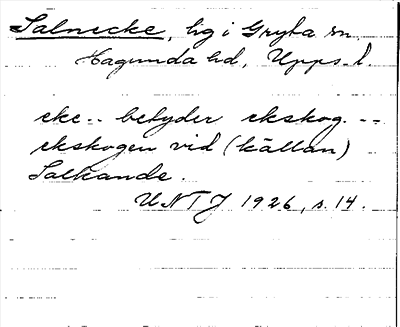 Salnecke, hg i Gryta sn.
Hagunda hd, Upps. l.
eke -- betyder ekskog. --
ekskogen vid (källan)
Salkande.
UNTJ 1926, s. 14.